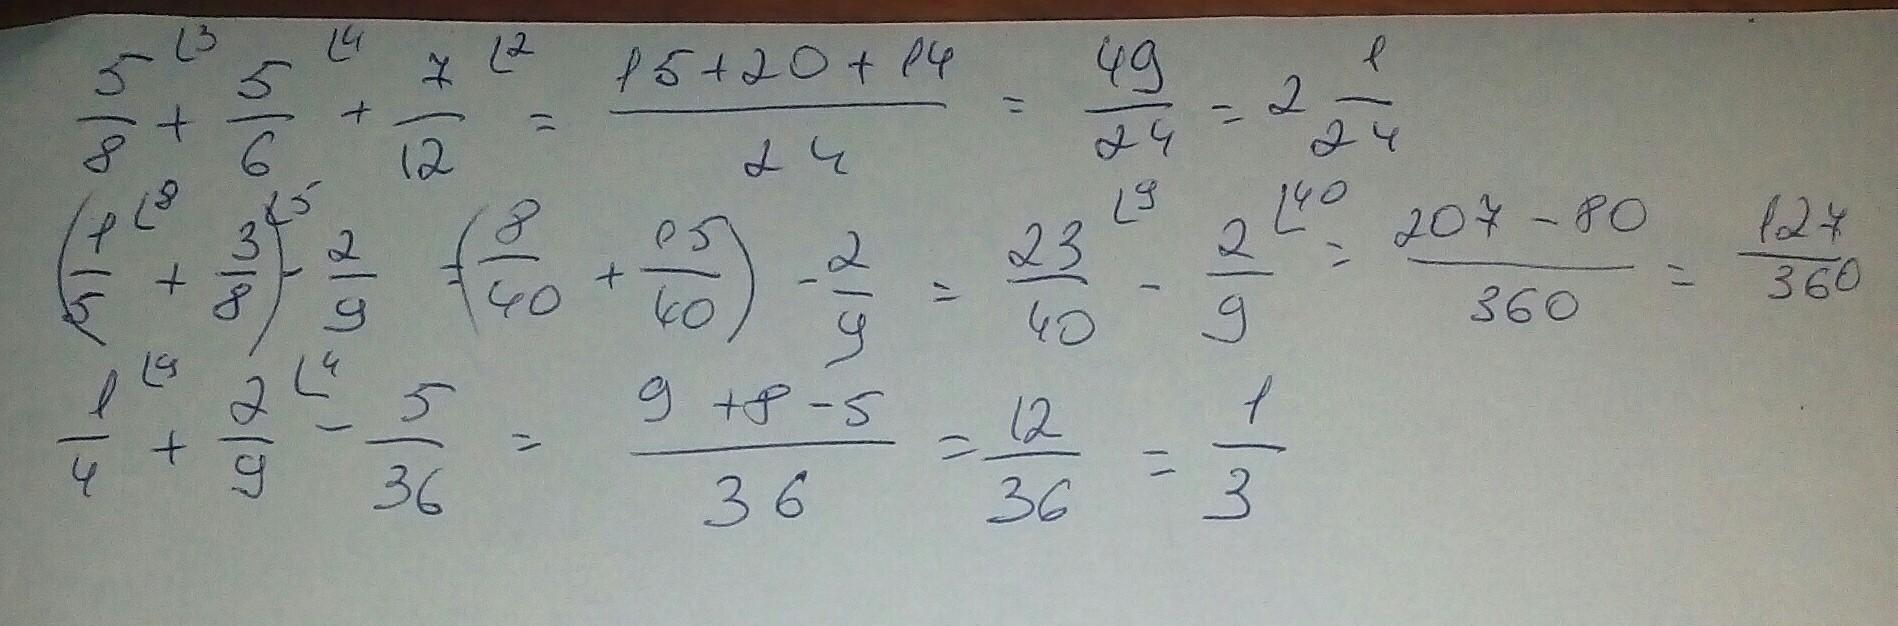 5/8 ⌊3 + 5/6 ⌊4 + 7/12 ⌊2 = (15+20+14)/24 = 49/24 = 2 1/24
(1/5 ⌊8 + 3/8 ⌊5) - 2/9 = (8/40 + 15/40) - 2/9 = 23/40 ⌊9 - 2/9 ⌊40 = (207-80)/360 = 127/360
1/4 ⌊9 + 2/9 ⌊4 - 5/36 = (9+8-5)/36 = 12/36 = 1/3